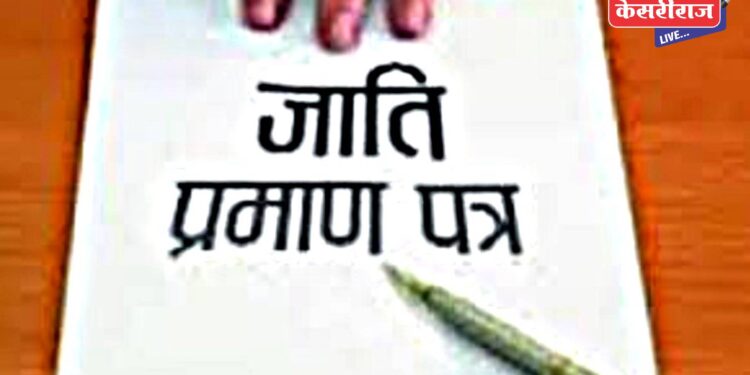 केसरीराज
LIVE...
जाति
प्रमाण पत्र